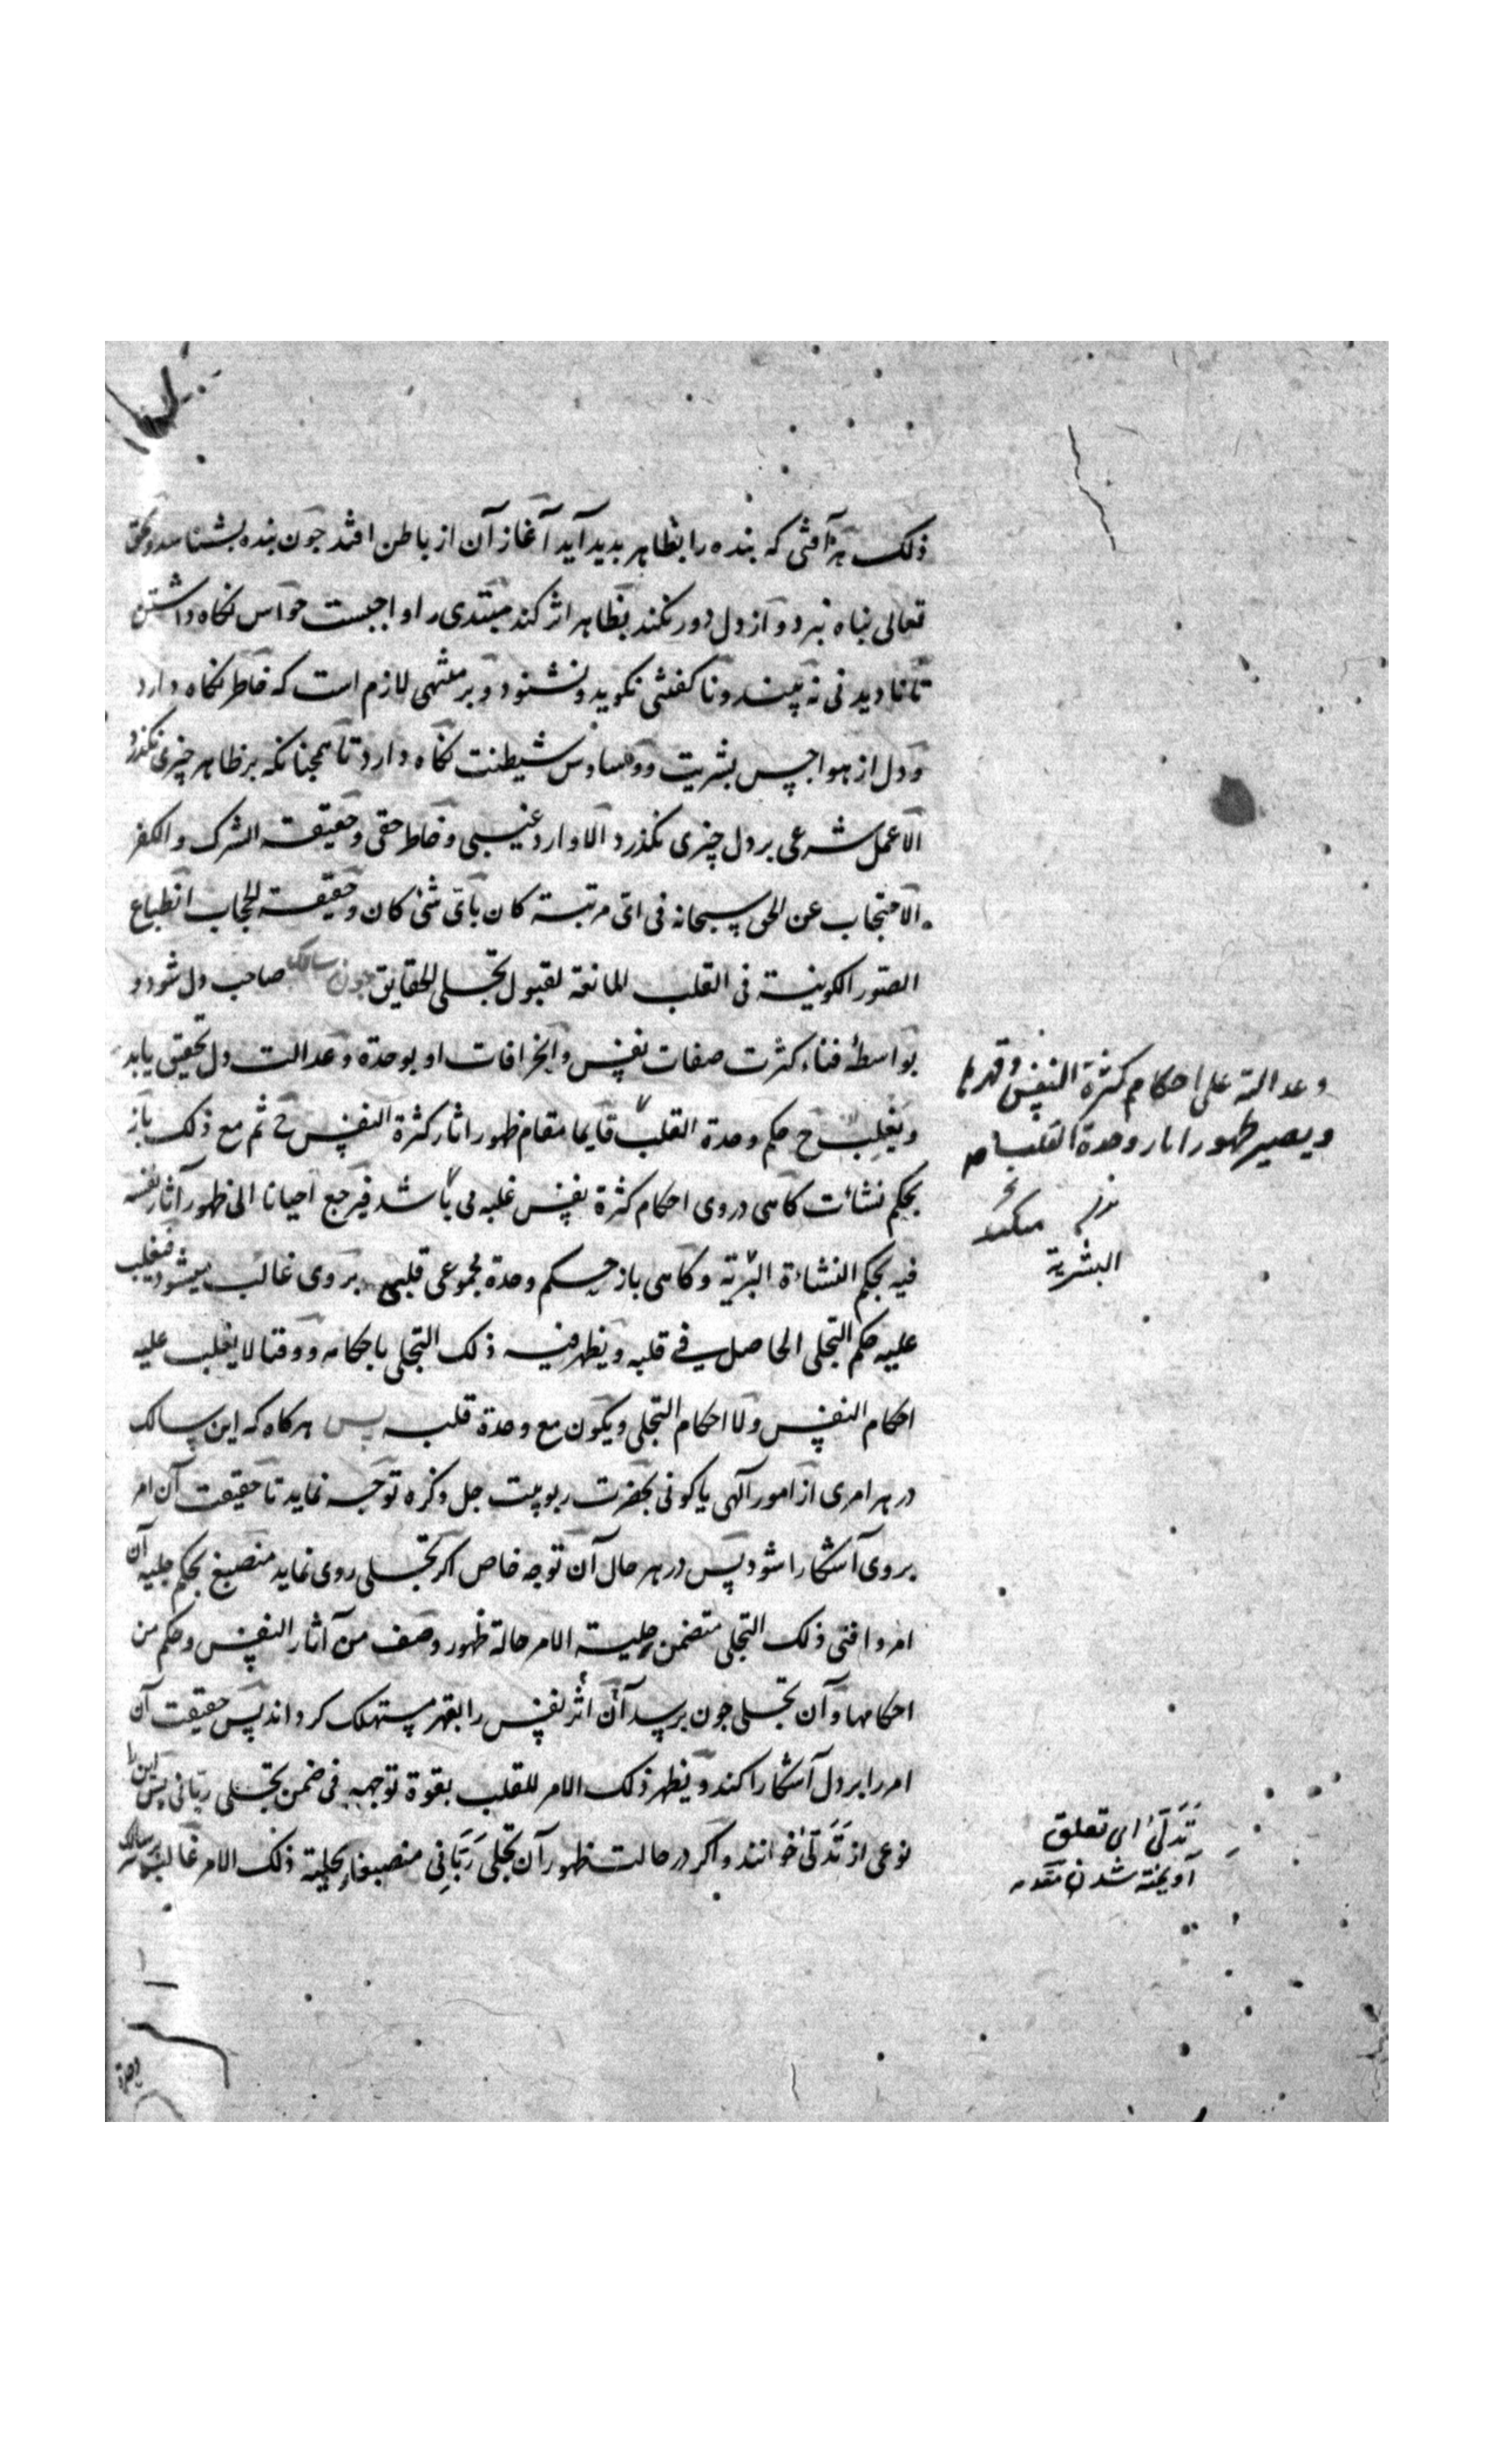 ذلک هر آفتی که بنده را بظاهر بدید آید آغاز آن از باطن افتد جون بنده بشناسد و بحق
تعالی پناه نبرد و از دل دور نکند بظاهر اثر کند مبتدی را واجبست حواس نکاه داشتن
تا نادیدنی نه بیند و ناکفتنی نکوید و نشنود و بر منتهی لازم است که خاطر نکاه دارد
و دل از هواجس بشریت و وساوس شیطنت نکاه دارد تا همجنانکه بر ظاهر چیزی نکذرد
الا عمل شرعی بر دل چیزی نکذرد الا وارد غیبی و خاطر حقی و حقیقة الشرک و الکفر
الاحتجاب عن الحق سبحانه فی ای مرتبة کان بای شئ کان و حقیقة الحجاب انطباع
الصور الکونیة فی القلب المانعة لقبول تجلی الحقایق جون سالک صاحب دل شود و
بواسطهٔ فناء کثرت صفات نفس و انحرافات او بوحدة و عدالت دل تحقیق یابد
و یغلب ح حکم وحدة القلب قایما مقام ظهور اثار کثرة النفس ثم مع ذلک باز
بحکم نشات کاهی در وی احکام کثرة نفس غلبه می باشد فیرجع احیانا الی ظهور آثار نفسه
فیه بحکم النشاءة البشریة و کاهی باز حکم وحدة مجموعی قلبی بر وی غالب میشود فیغلب
علیه حکم التجلی الحاصل فی قلبه و یظهر فیه ذلک التجلی باحکامه و وقتا لا یغلب علیه
احکام النفس و لا احکام التجلی و یکون مع وحدة قلبه پس هرکاه که این سالک
در هر امری از امور آلهی یا کونی بحضرت ربوبیت جل ذکره توجه نماید تا حقیقت آن امر
بر وی آشکارا شود پس در هر حال آن توجه خاص اکر تجلی روی نماید منصبغ بحکم حلیه آن
امر و افنی ذلک التجلی متضمن حلیة الامر حالة ظهور وصف من آثار النفس و حکم من
احکامها و آن تجلی جون برسد آن اثر نفس را بقهر مستهلک کرداند پس حقیقت آن
امر را بر دل آشکارا کند و یظهر ذلک الامر للقلب بقوة توجهه فی ضمن تجلی ربانی پس این را
نوعی از تَدَلّیٰ خوانند و اکر در حالت ظهور آن تجلی رَبّانِی منصبغا بحلیة ذلک الامر غالب بر سالک
و عدالته علی احکام کثرة النفس و قهرها
و یصیر ظهور اثار وحدة القلب
میکند
البشریة
تَدَلّیٰ ای تعلق
آویخته شدن